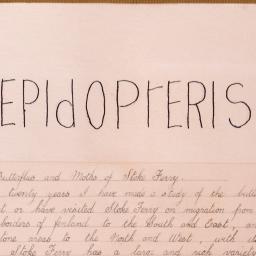 EPIdOPrERIS
Butterflies and Moths of Stoke Ferry.
twenty years I have made a study of the butte
t or have visited Stoke Ferry on migration from
borders of fenland to the South and East, an
tone areas to the North and West, with d
Stoke Ferry has a large and rich variety